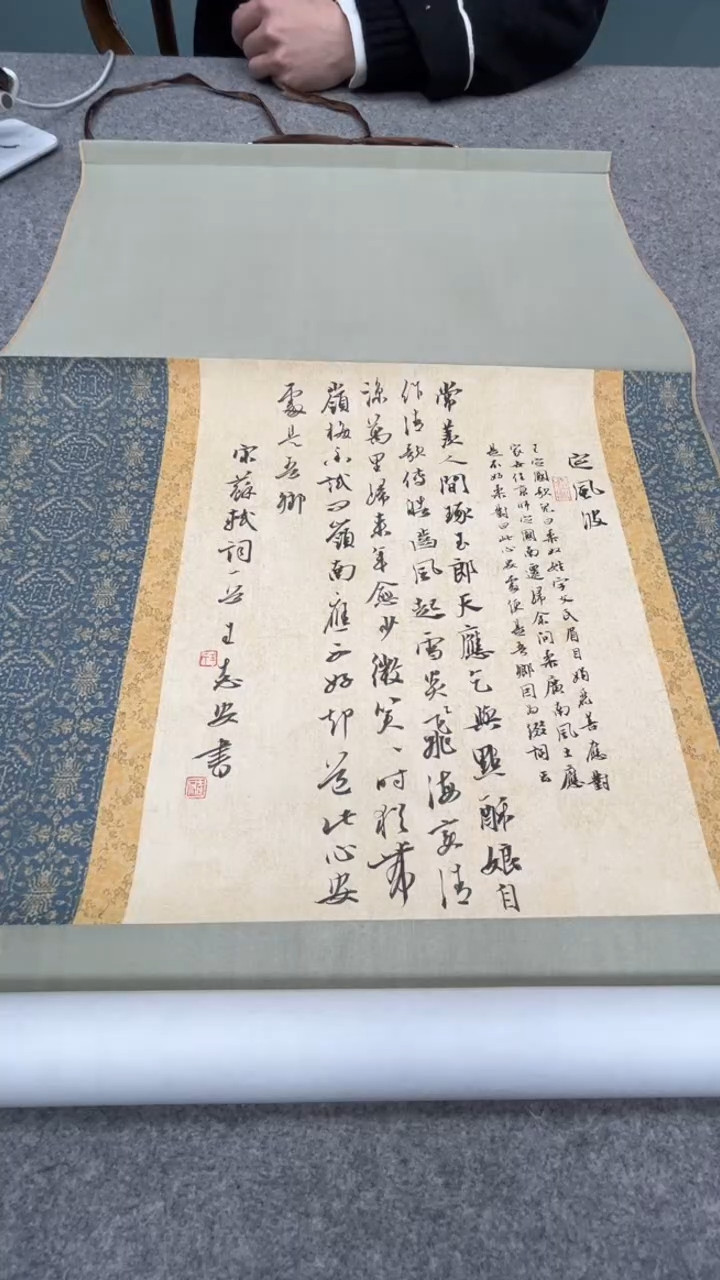 定風波
王定國歌兒曰柔奴姓宇文氏眉目娟麗善應對
家世住京師定國南遷歸余問柔廣南風土應
是不好柔對曰此心安處便是吾鄉因為綴詞云
常羨人間琢玉郎天應乞與點酥娘自
作清歌傳皓齒風起雪炎飛海變清
涼萬里歸來年愈少微笑丶時猶帶
嶺梅香試問嶺南應不好却道此心安
處是吾鄉
宋蘇軾詞一首王志安書